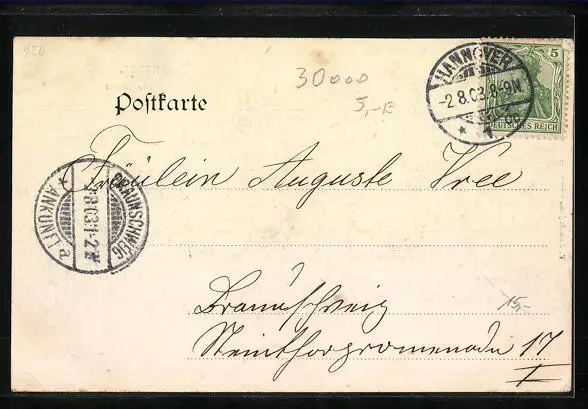 120
30000
5,-E
HANNOVER
-2.8.03.8-9N.
* 1. *
5
DEUTSCHES REICH
Postkarte
Fräulein Auguste Vree
BRAUNSCHWEIG
8.03.1-2N
* ANKUNFT a
Braunschweig
15,-
Steinthorpromenade 17
I